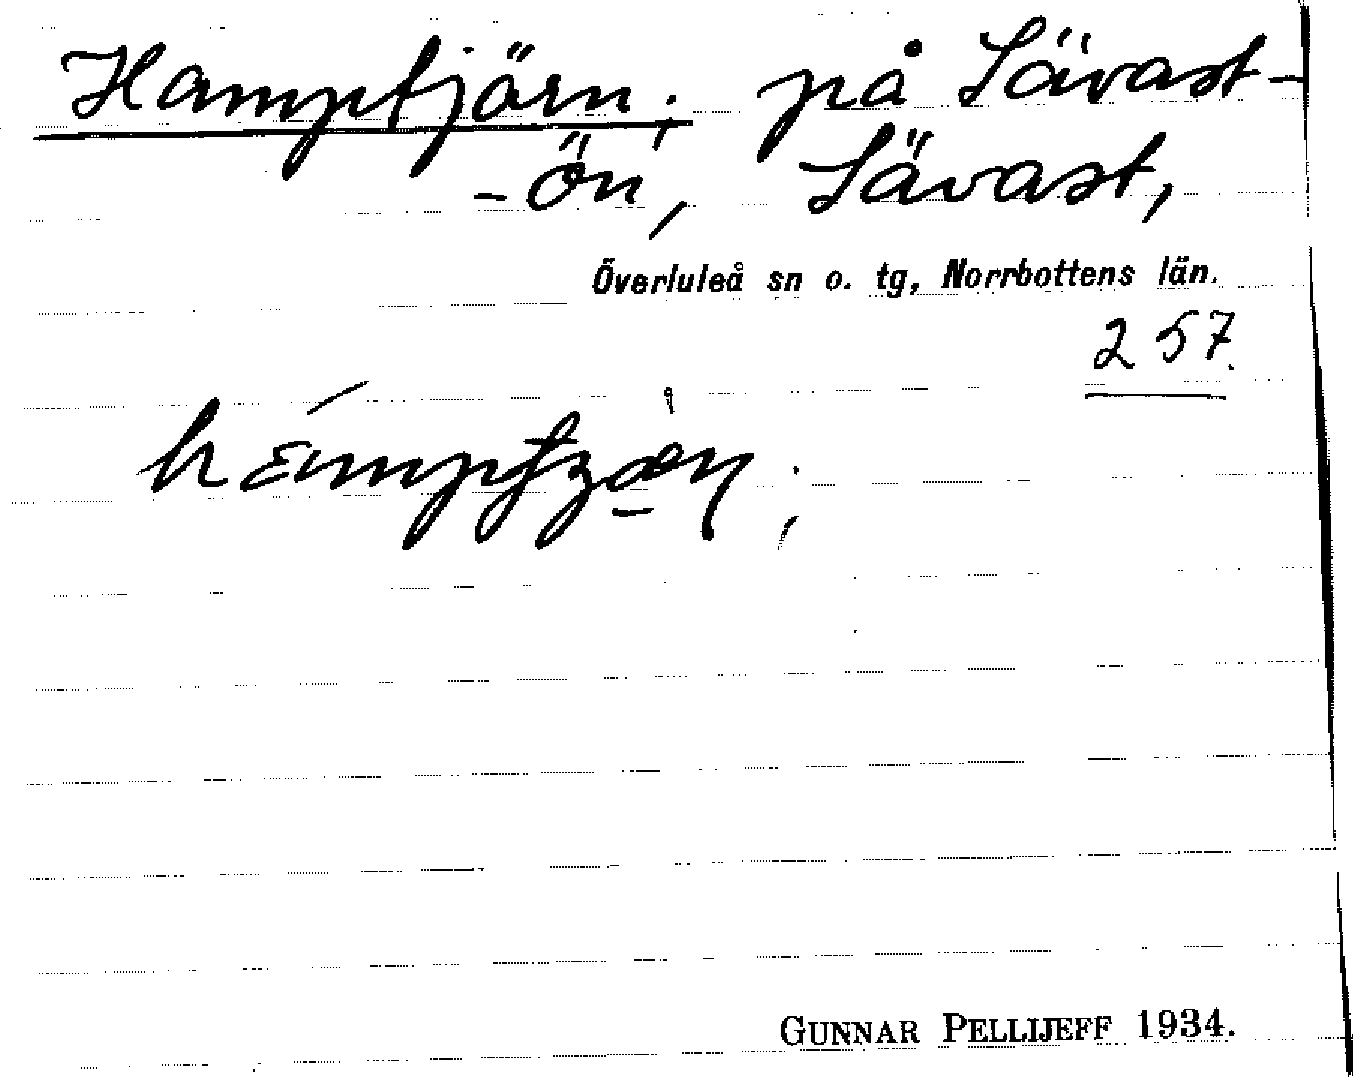 Hamptjörn; på Sävast-
-ön, Sävast,
Överluleå sn o. tg, Norrbottens län.
257.
GUNNAR PELLIJEFF 1934.